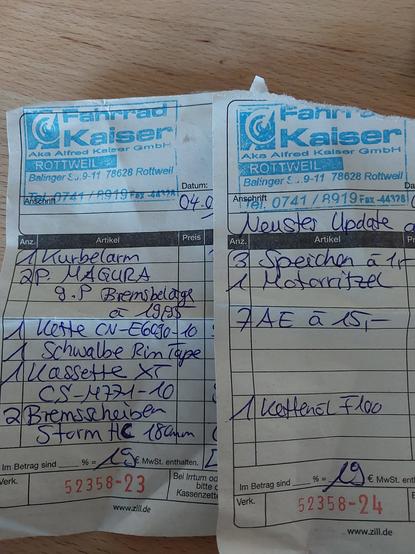 Fahrrad
Kaiser
Aka Alfred Kaiser GmbH
ROTTWEIL
Balinger S 9-11 78628 Rottweil
Tel. 0741 / 8919 Fax -44328
Anschrift
Datum:
04.0
Anz. Artikel Preis
1 Kurbelarm
2 P. MAGURA
9.P Bremsbeläge
à 19,95
1 Kette CN-E6090-10
1 Schwalbe Rim Tape
1 Kassette XT
CS-M771-10
2 Bremsscheiben
Storm HC 180mm
Im Betrag sind % = 19 € MwSt. enthalten.
Verk.
52358-23
Bei Irrtum od
bitte
Kassenzette
www.zill.de
Fahrrad
Kaiser
Aka Alfred Kaiser GmbH
ROTTWEIL
Balinger S 9-11 78628 Rottweil
Tel. 0741 / 8919 Fax -44328
Anschrift
Da
Neustes Update
Anz. Artikel P
3 Speichen à 1,-
1 Motorritzel
7 AE à 15,-
1 Kettenöl F100
Im Betrag sind % = 19 € MwSt. enthalten.
Verk.
52358-24
www.zill.de